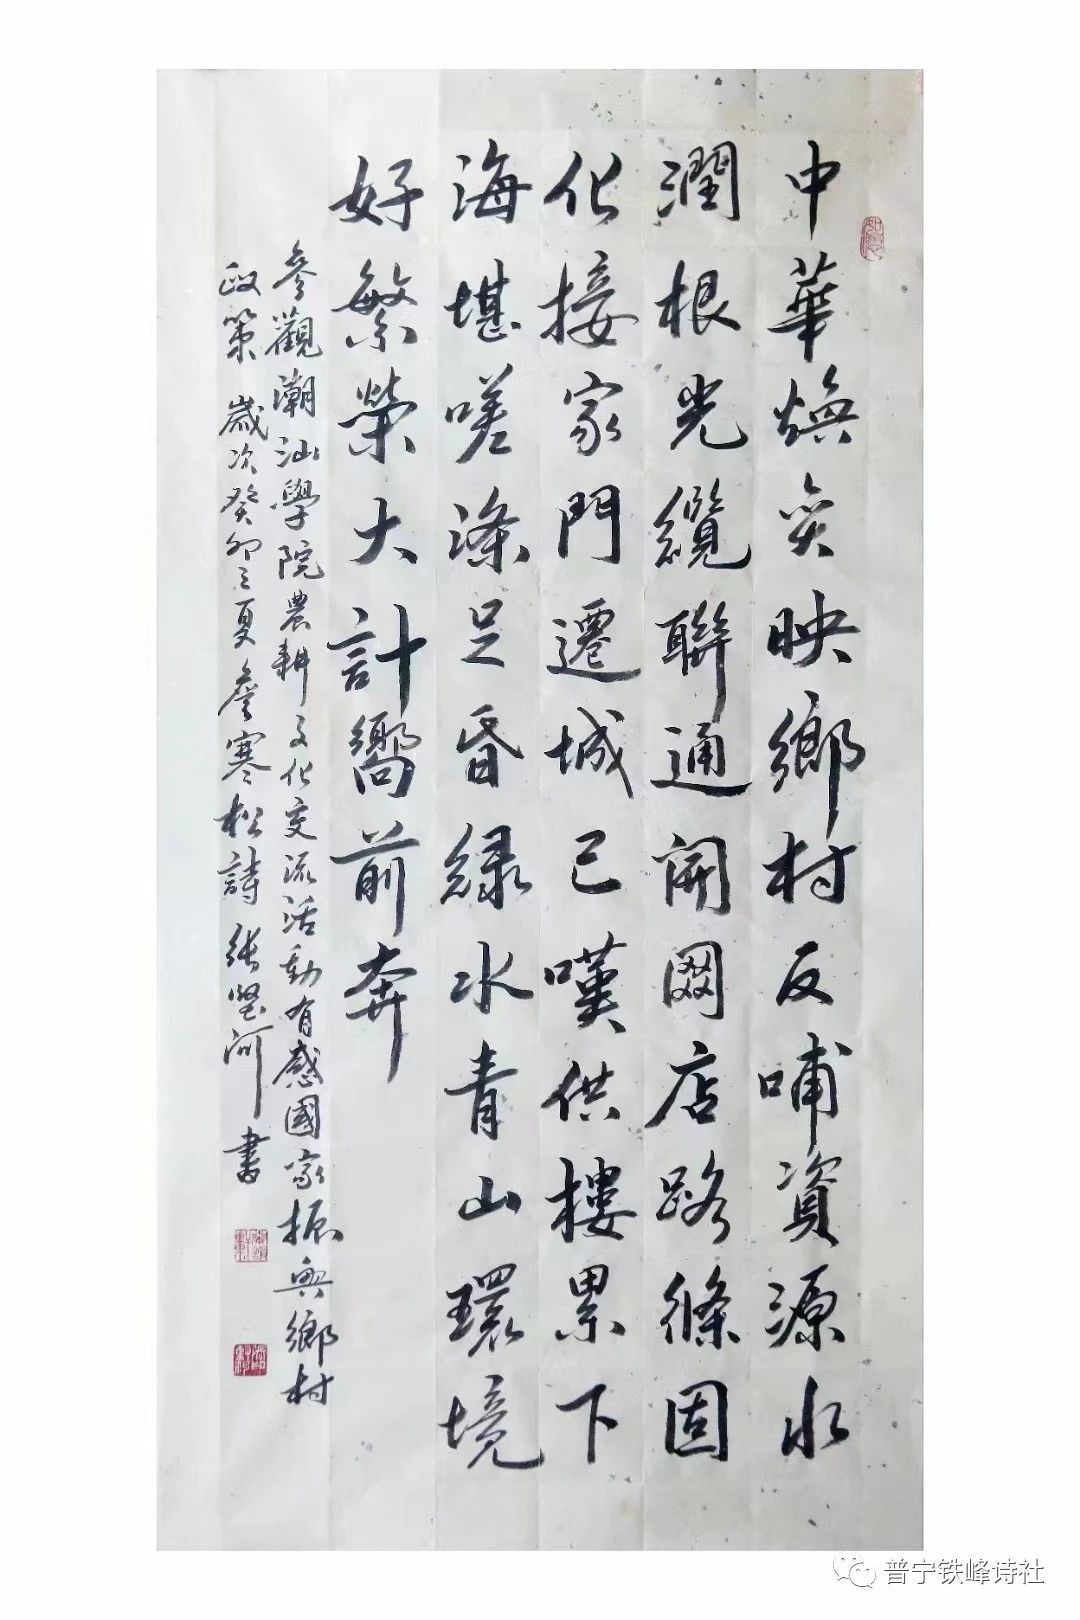 中華煥奕映鄉村反哺資源水
潤根光纜聯通開网店路條固
化接家門遷城已嘆供樓累下
海堪嗟滌足昏綠水青山環境
好繁榮大計嚮前奔
參觀潮汕學院農耕文化交流活動有感國家振興鄉村
政策 歲次癸卯之夏詹寒松詩 張堅河書
普宁铁峰诗社